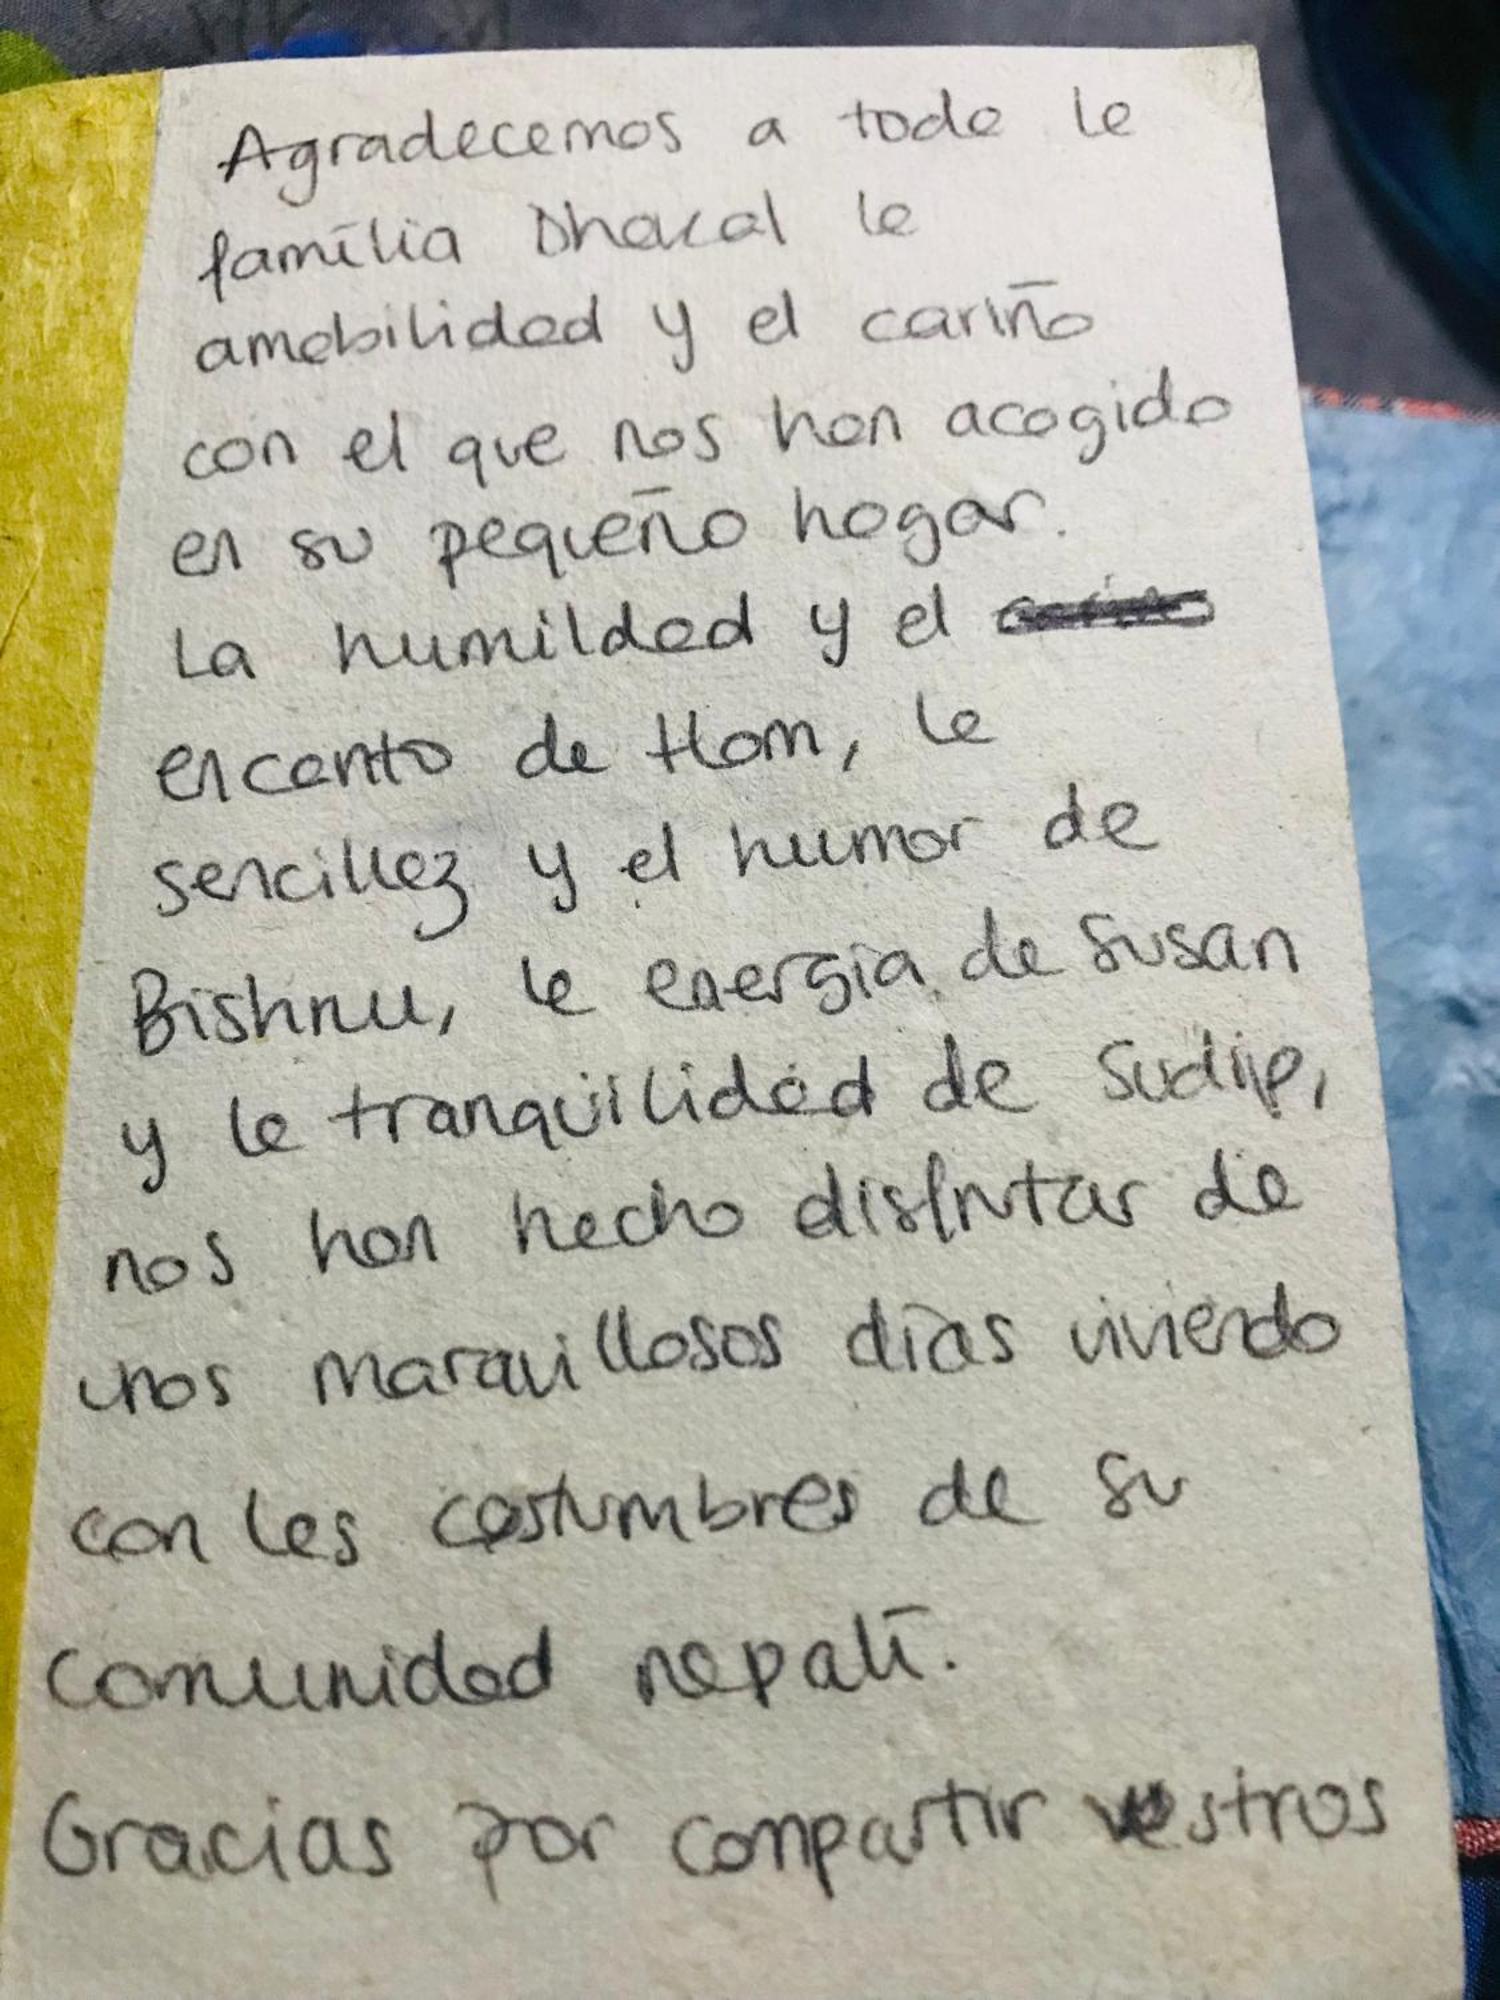 Agradecemos a toda la
família Dhacal la
amabilidad y el cariño
con el que nos han acogido
en su pequeño hogar.
La humildad y el
encanto de Hom, la
sencillez y el humor de
Bishnu, la energía de Susan
y la tranquilidad de Sudip,
nos han hecho disfrutar de
unos maravillosos días viviendo
con las costumbres de su
comunidad nepalí.
Gracias por compartir vestros